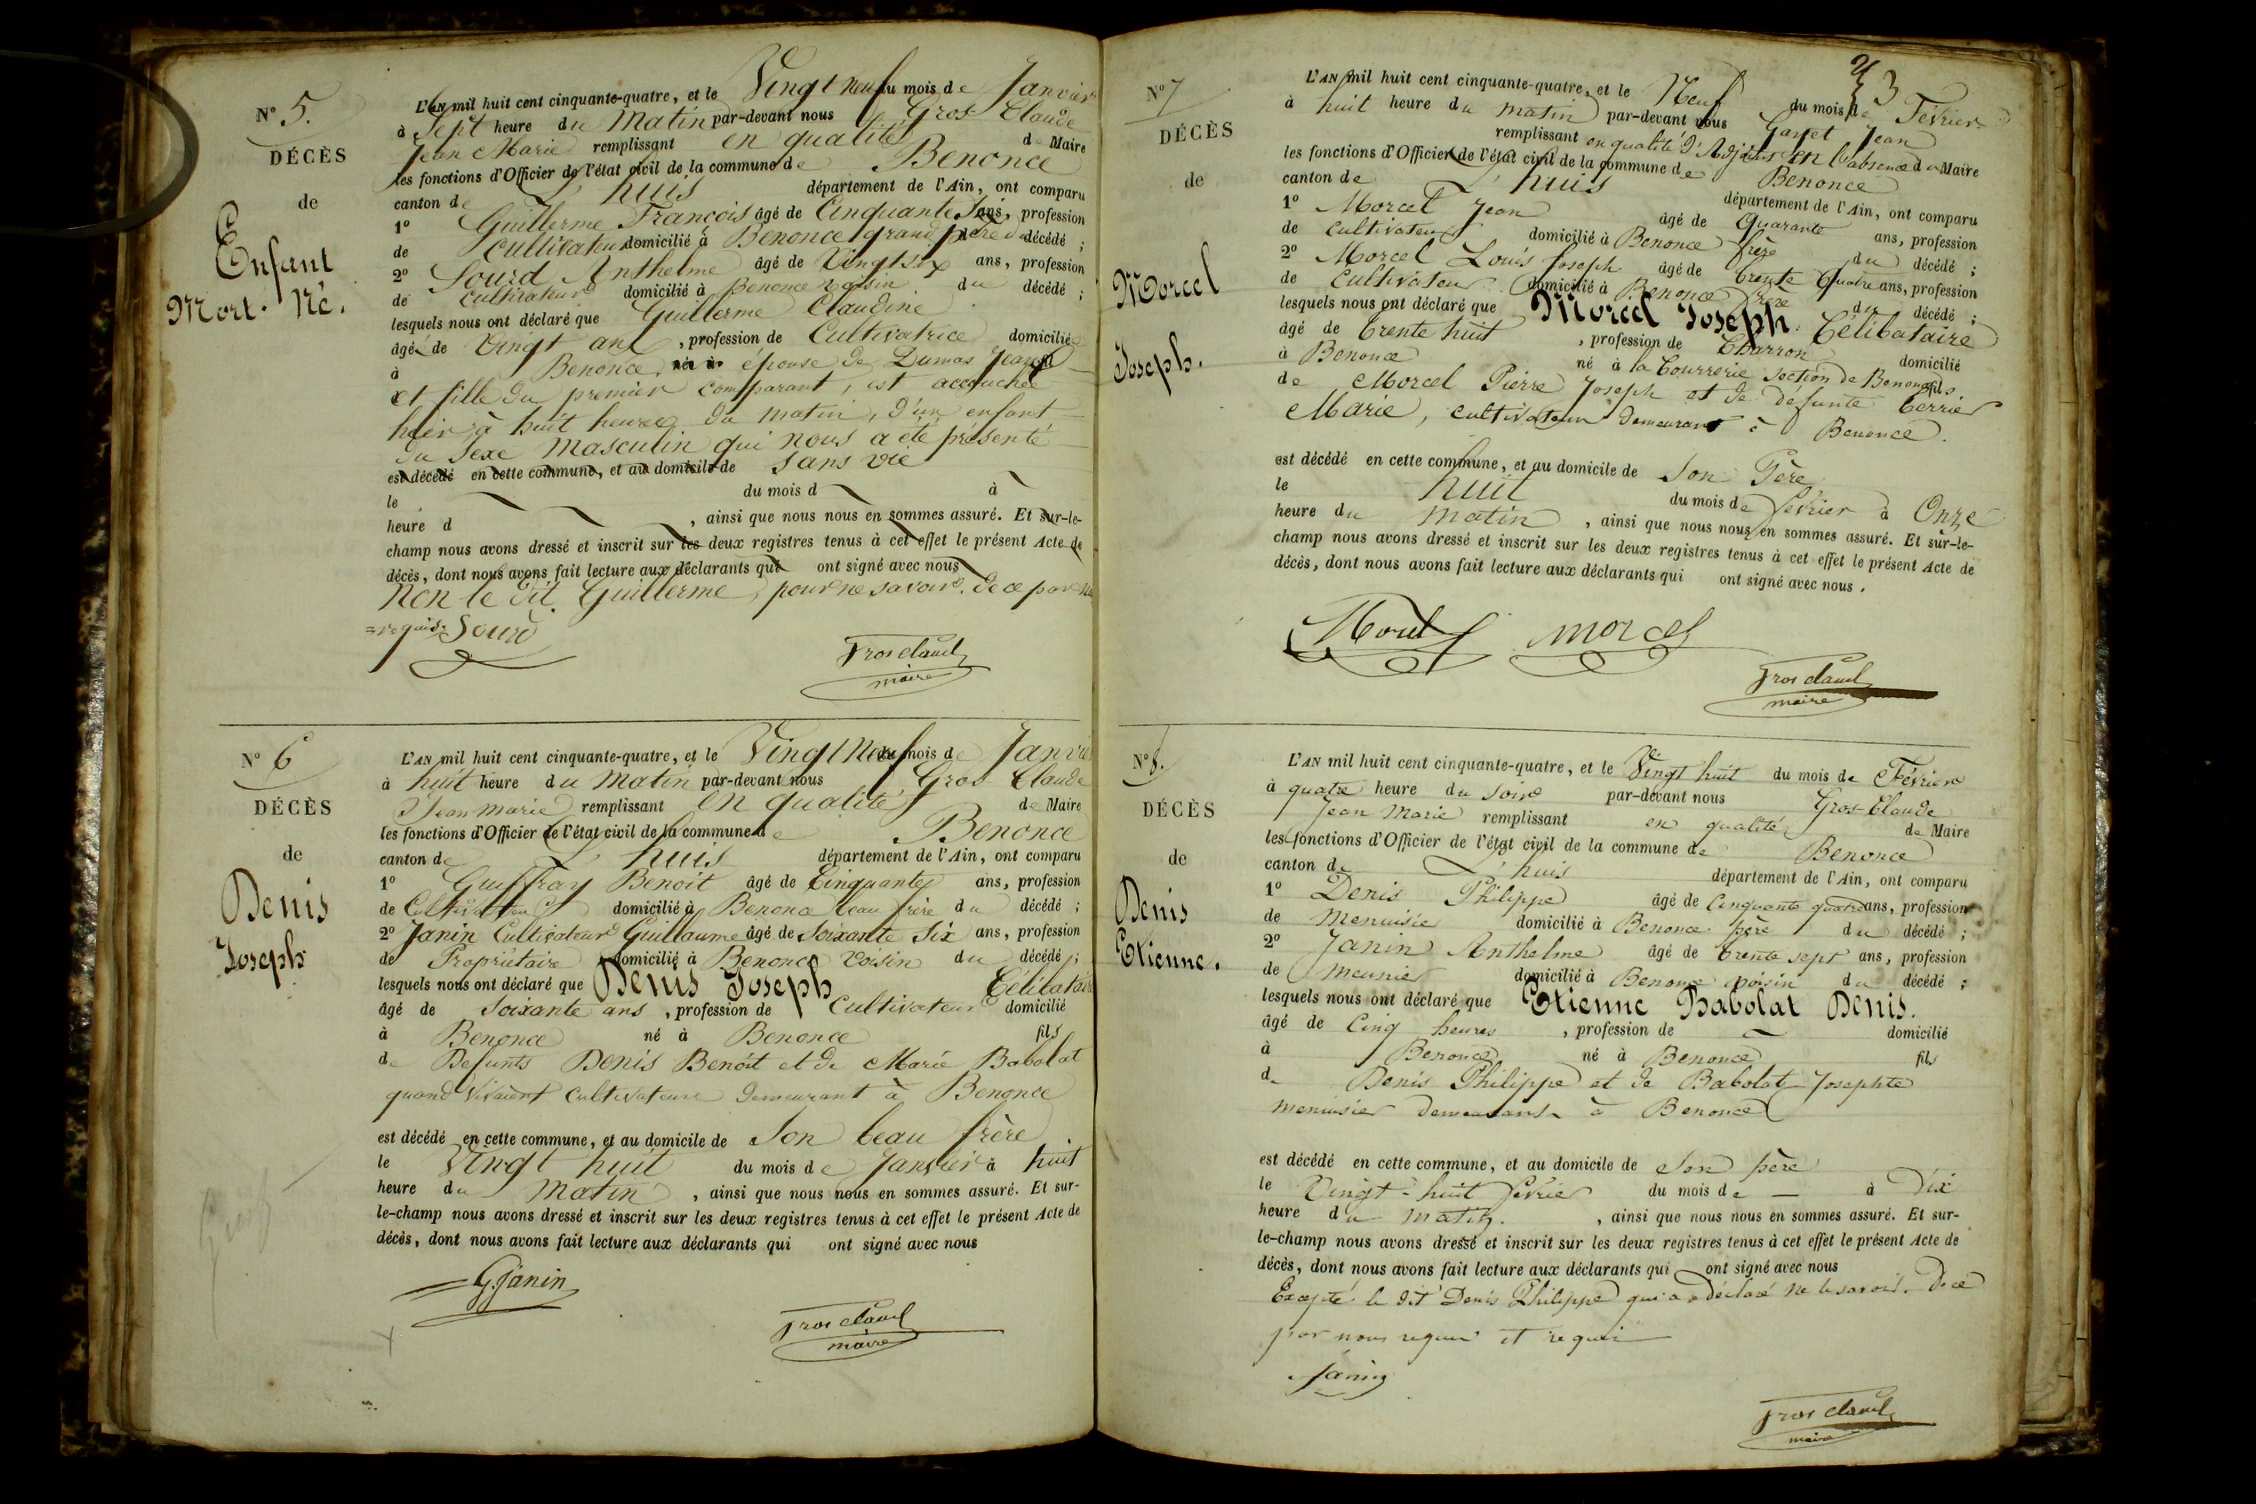 N° 5.
DÉCÈS
de
Enfant
Mort-Né.
L'AN mil huit cent cinquante-quatre, et le Vingt neuf du mois de Janvier
à Sept heure du Matin par-devant nous Gros Claude
Jean Marie remplissant en qualité de Maire
les fonctions d'Officier de l'état civil de la commune de Benonce
canton de L'huis département de l'Ain, ont comparu
1° Guillerme François âgé de Cinquante Six ans, profession
de Cultivateur domicilié à Benonce grand père du décédé ;
2° Sourd Anthelme âgé de Vingt six ans, profession
de Cultivateur domicilié à Benonce voisin du décédé ;
lesquels nous ont déclaré que Guillerme Claudine
âgé de Vingt ans , profession de Cultivatrice domicilié
à Benonce, née à épouse de Dumas Jean
et fille du premier comparant, est accouchée
hier à huit heures du matin, d'un enfant
du Sexe Masculin qui nous a été présenté
est décédé en cette commune, et au domicile de Sans vie
le du mois d à
heure d , ainsi que nous nous en sommes assuré. Et sur-le-
champ nous avons dressé et inscrit sur les deux registres tenus à cet effet le présent Acte de
décès, dont nous avons fait lecture aux déclarants qui ont signé avec nous
Non le dit Guillerme, pour ne savoir, de ce par nous
=requis. Sourd
Gros claud
maire
N° 6
DÉCÈS
de
Denis
Joseph
L'AN mil huit cent cinquante-quatre, et le Vingt Neuf du mois de Janvier
à huit heure du Matin par-devant nous Gros Claude
Jean Marie remplissant en qualité de Maire
les fonctions d'Officier de l'état civil de la commune de Benonce
canton de L'huis département de l'Ain, ont comparu
1° Guiffray Benoit âgé de Cinquante ans, profession
de Cultivateur domicilié à Benonce beau frère du décédé ;
2° Janin Cultivateur Guillaume âgé de Soixante Six ans, profession
de Propriétaire domicilié à Benonce Voisin du décédé ;
lesquels nous ont déclaré que Denis Joseph Célibataire
âgé de Soixante ans , profession de Cultivateur domicilié
à Benonce né à Benonce fils
de Defunts Denis Benoit et de Marie Babolat
quand Vivaient Cultivateurs demeurant à Benonce
est décédé en cette commune, et au domicile de Son beau frère
le Vingt huit du mois de Janvier à huit
heure du Matin , ainsi que nous nous en sommes assuré. Et sur-
le-champ nous avons dressé et inscrit sur les deux registres tenus à cet effet le présent Acte de
décès, dont nous avons fait lecture aux déclarants qui ont signé avec nous
G. Janin
Gros claud
maire
3
N° 7
DÉCÈS
de
Morcel
Joseph.
L'AN mil huit cent cinquante-quatre, et le Neuf du mois de Février
à huit heure du matin par-devant nous Garret Jean
remplissant en qualité d'Adjoint en l'absence du Maire
les fonctions d'Officier de l'état civil de la commune de Benonce
canton de L'huis département de l'Ain, ont comparu
1° Morcel Jean âgé de Quarante ans, profession
de Cultivateur domicilié à Benonce frère du décédé ;
2° Morcel Louis Joseph âgé de trente Quatre ans, profession
de Cultivateur domicilié à Benonce frère du décédé ;
lesquels nous ont déclaré que Morcel Joseph. Célibataire
âgé de trente huit , profession de Charron domicilié
à Benonce né à la Courrerie Section de Benonce fils
de Morcel Pierre Joseph et de défunte Terrier
Marie, cultivateur demeurant à Benonce.
est décédé en cette commune, et au domicile de Son Père
le huit du mois de Février à Onze
heure du matin , ainsi que nous nous en sommes assuré. Et sur-le-
champ nous avons dressé et inscrit sur les deux registres tenus à cet effet le présent Acte de
décès, dont nous avons fait lecture aux déclarants qui ont signé avec nous.
Morcel morcel
Gros claud
maire
N° 8.
DÉCÈS
de
Denis
Etienne.
L'AN mil huit cent cinquante-quatre, et le Vingt huit du mois de Février
à quatre heure du soir par-devant nous Gros Claude
Jean Marie remplissant en qualité de Maire
les fonctions d'Officier de l'état civil de la commune de Benonce
canton de L'huis département de l'Ain, ont comparu
1° Denis Philippe âgé de Cinquante quatre ans, profession
de Menuisier domicilié à Benonce père du décédé ;
2° Janin Anthelme âgé de trente sept ans, profession
de meunier domicilié à Benonce voisin du décédé ;
lesquels nous ont déclaré que Etienne Babolat Denis.
âgé de Cinq heures , profession de domicilié
à Benonce né à Benonce fils
de Denis Philippe et de Babolat Josephte
menuisier demeurans à Benonce
est décédé en cette commune, et au domicile de Son père
le Vingt-huit Février du mois de — à Dix
heure du matin. , ainsi que nous nous en sommes assuré. Et sur-
le-champ nous avons dressé et inscrit sur les deux registres tenus à cet effet le présent Acte de
décès, dont nous avons fait lecture aux déclarants qui ont signé avec nous
Excepté le dit Denis Philippe qui a déclaré ne le savoir. De ce
par nous requis et requis
Janin
Gros claud
maire